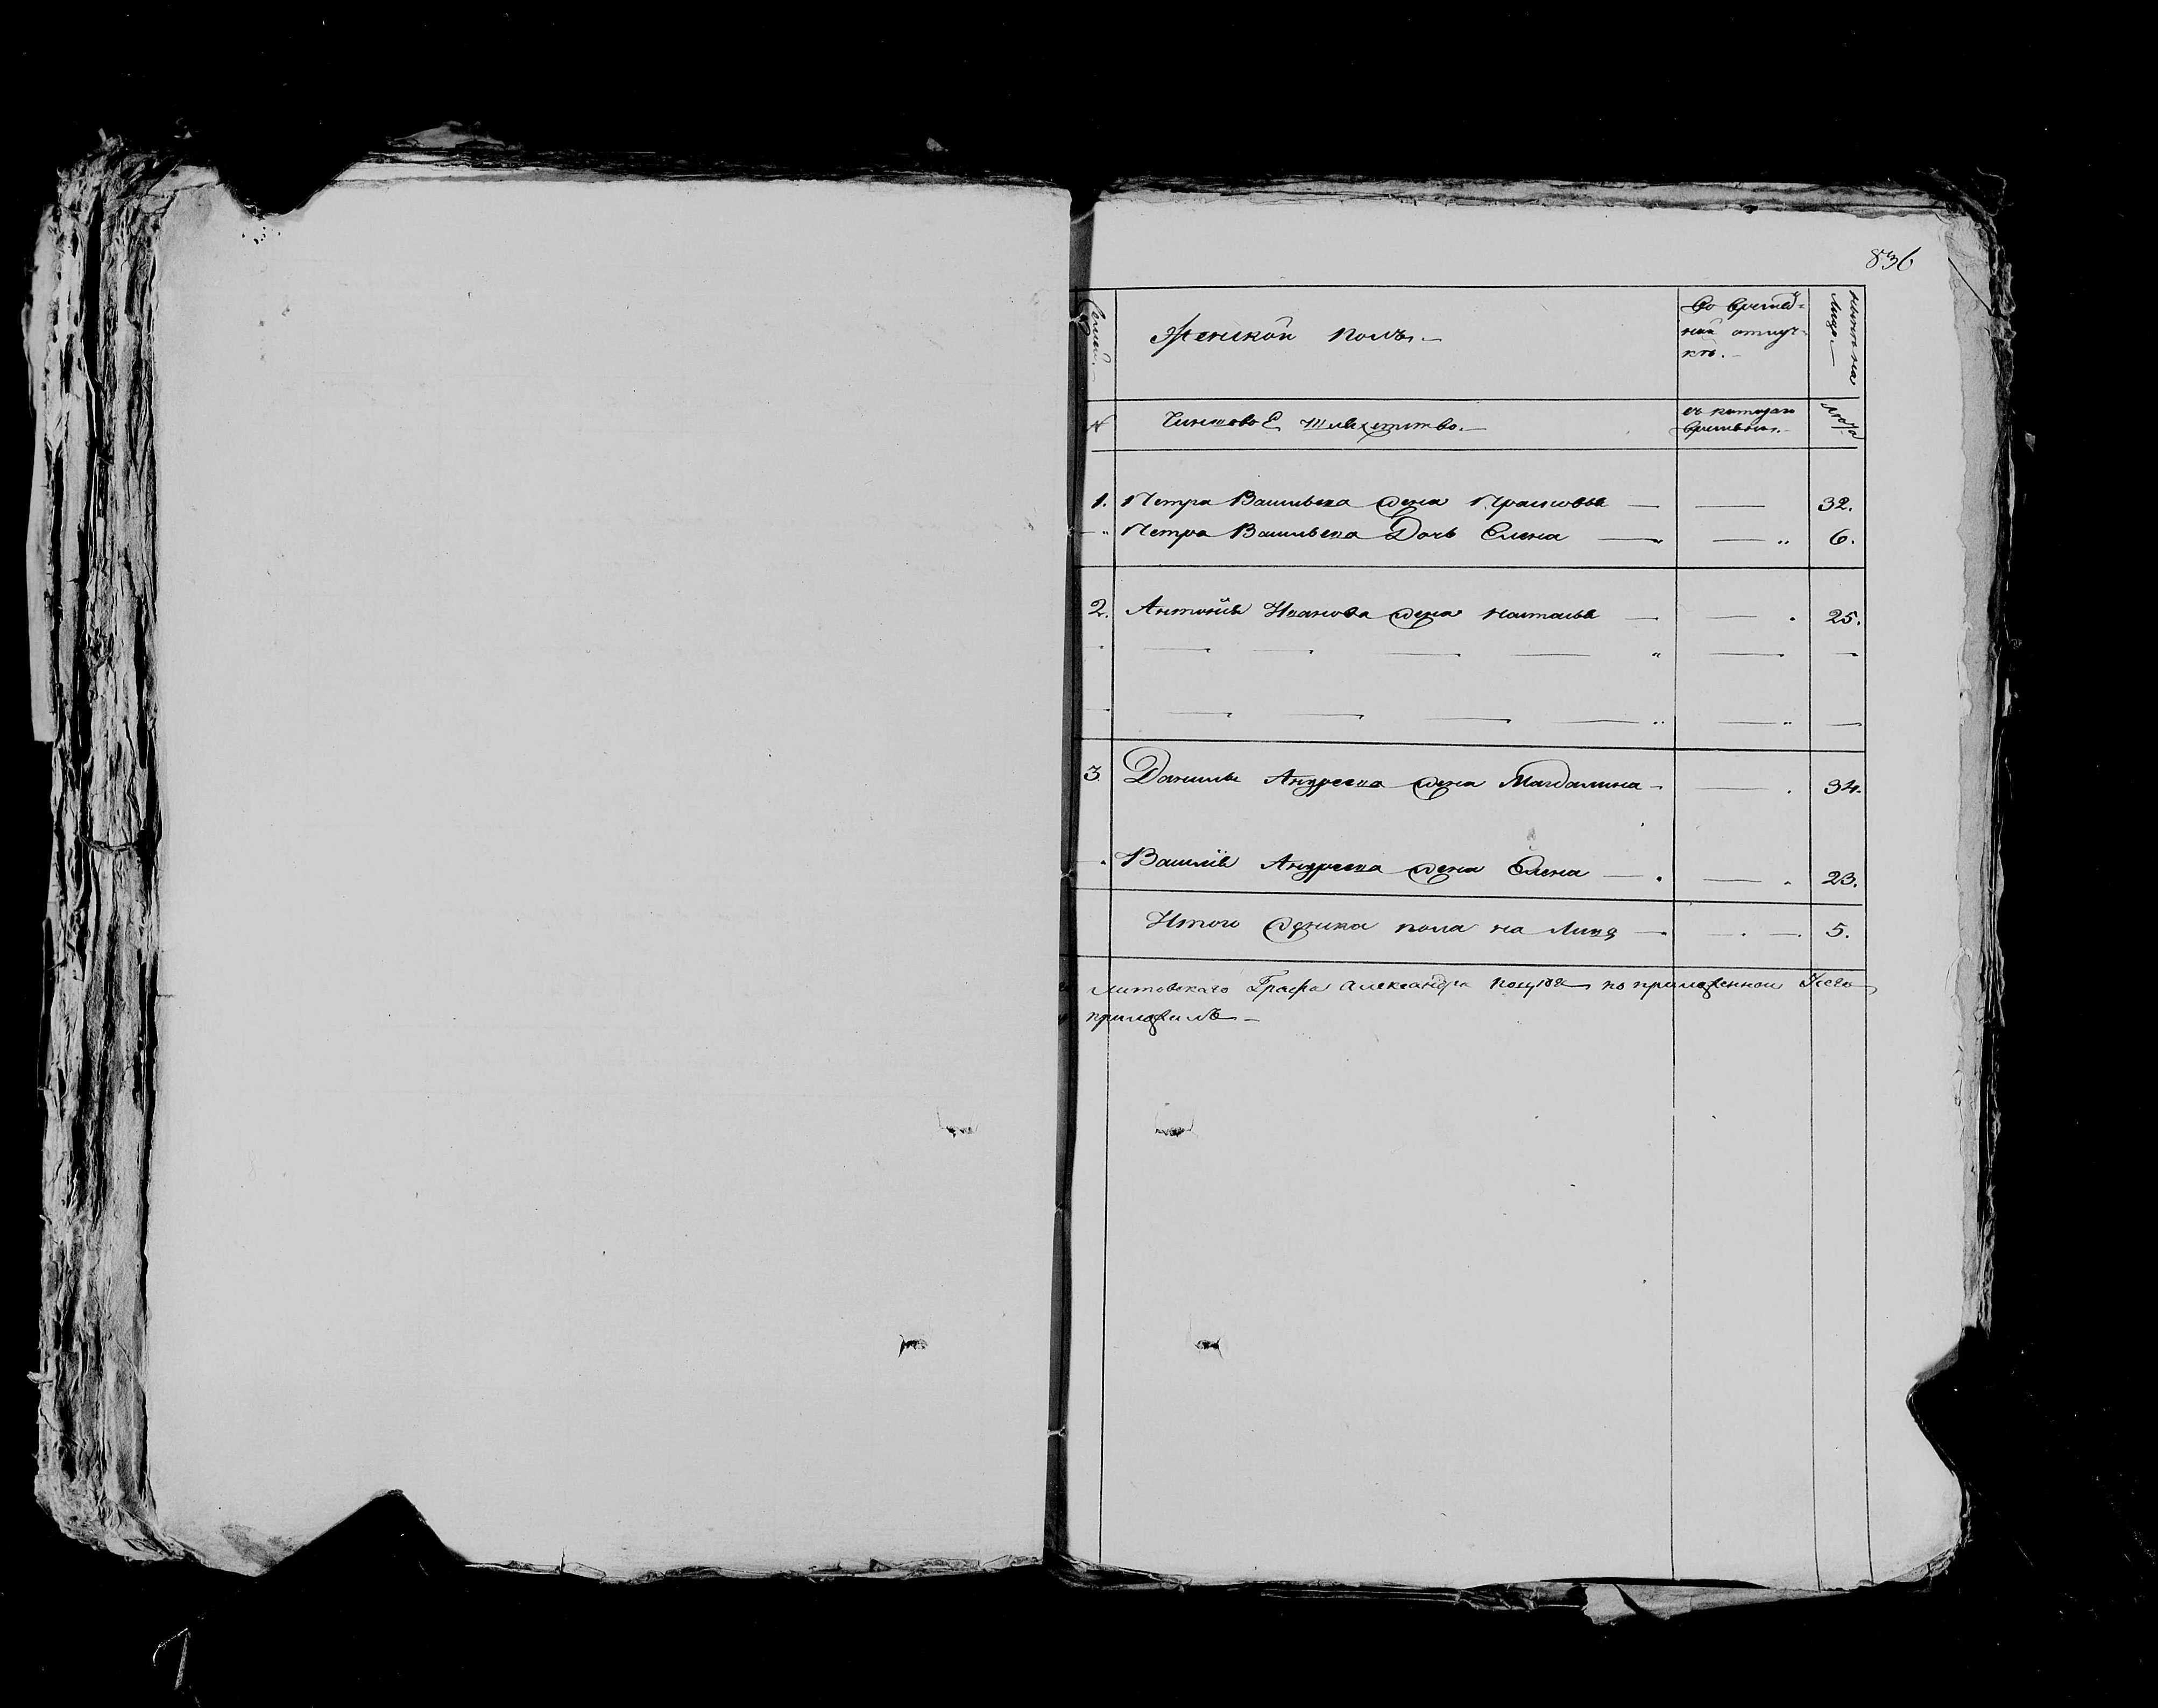 836
Семей.
Женской полъ.
Во времѣн-
ной отлуч-
кѣ.
нынѣ на
Лицо.
№
Чиншовое шляхетство.
съ котораго
времѣни.
Лѣта
1. Петра Васильева жена Прасковья — — 32.
Петра Васильева Дочь Елена — — 6.
2. Антонія Иванова жена Наталья — — 25.
3. Данилы Андреева жена Магдалина — — 34.
Василія Андреева жена Елена — — 23.
Итого женска пола на Лицо — — 5.
Литовскаго Графа Александра по приложенной
приложилъ